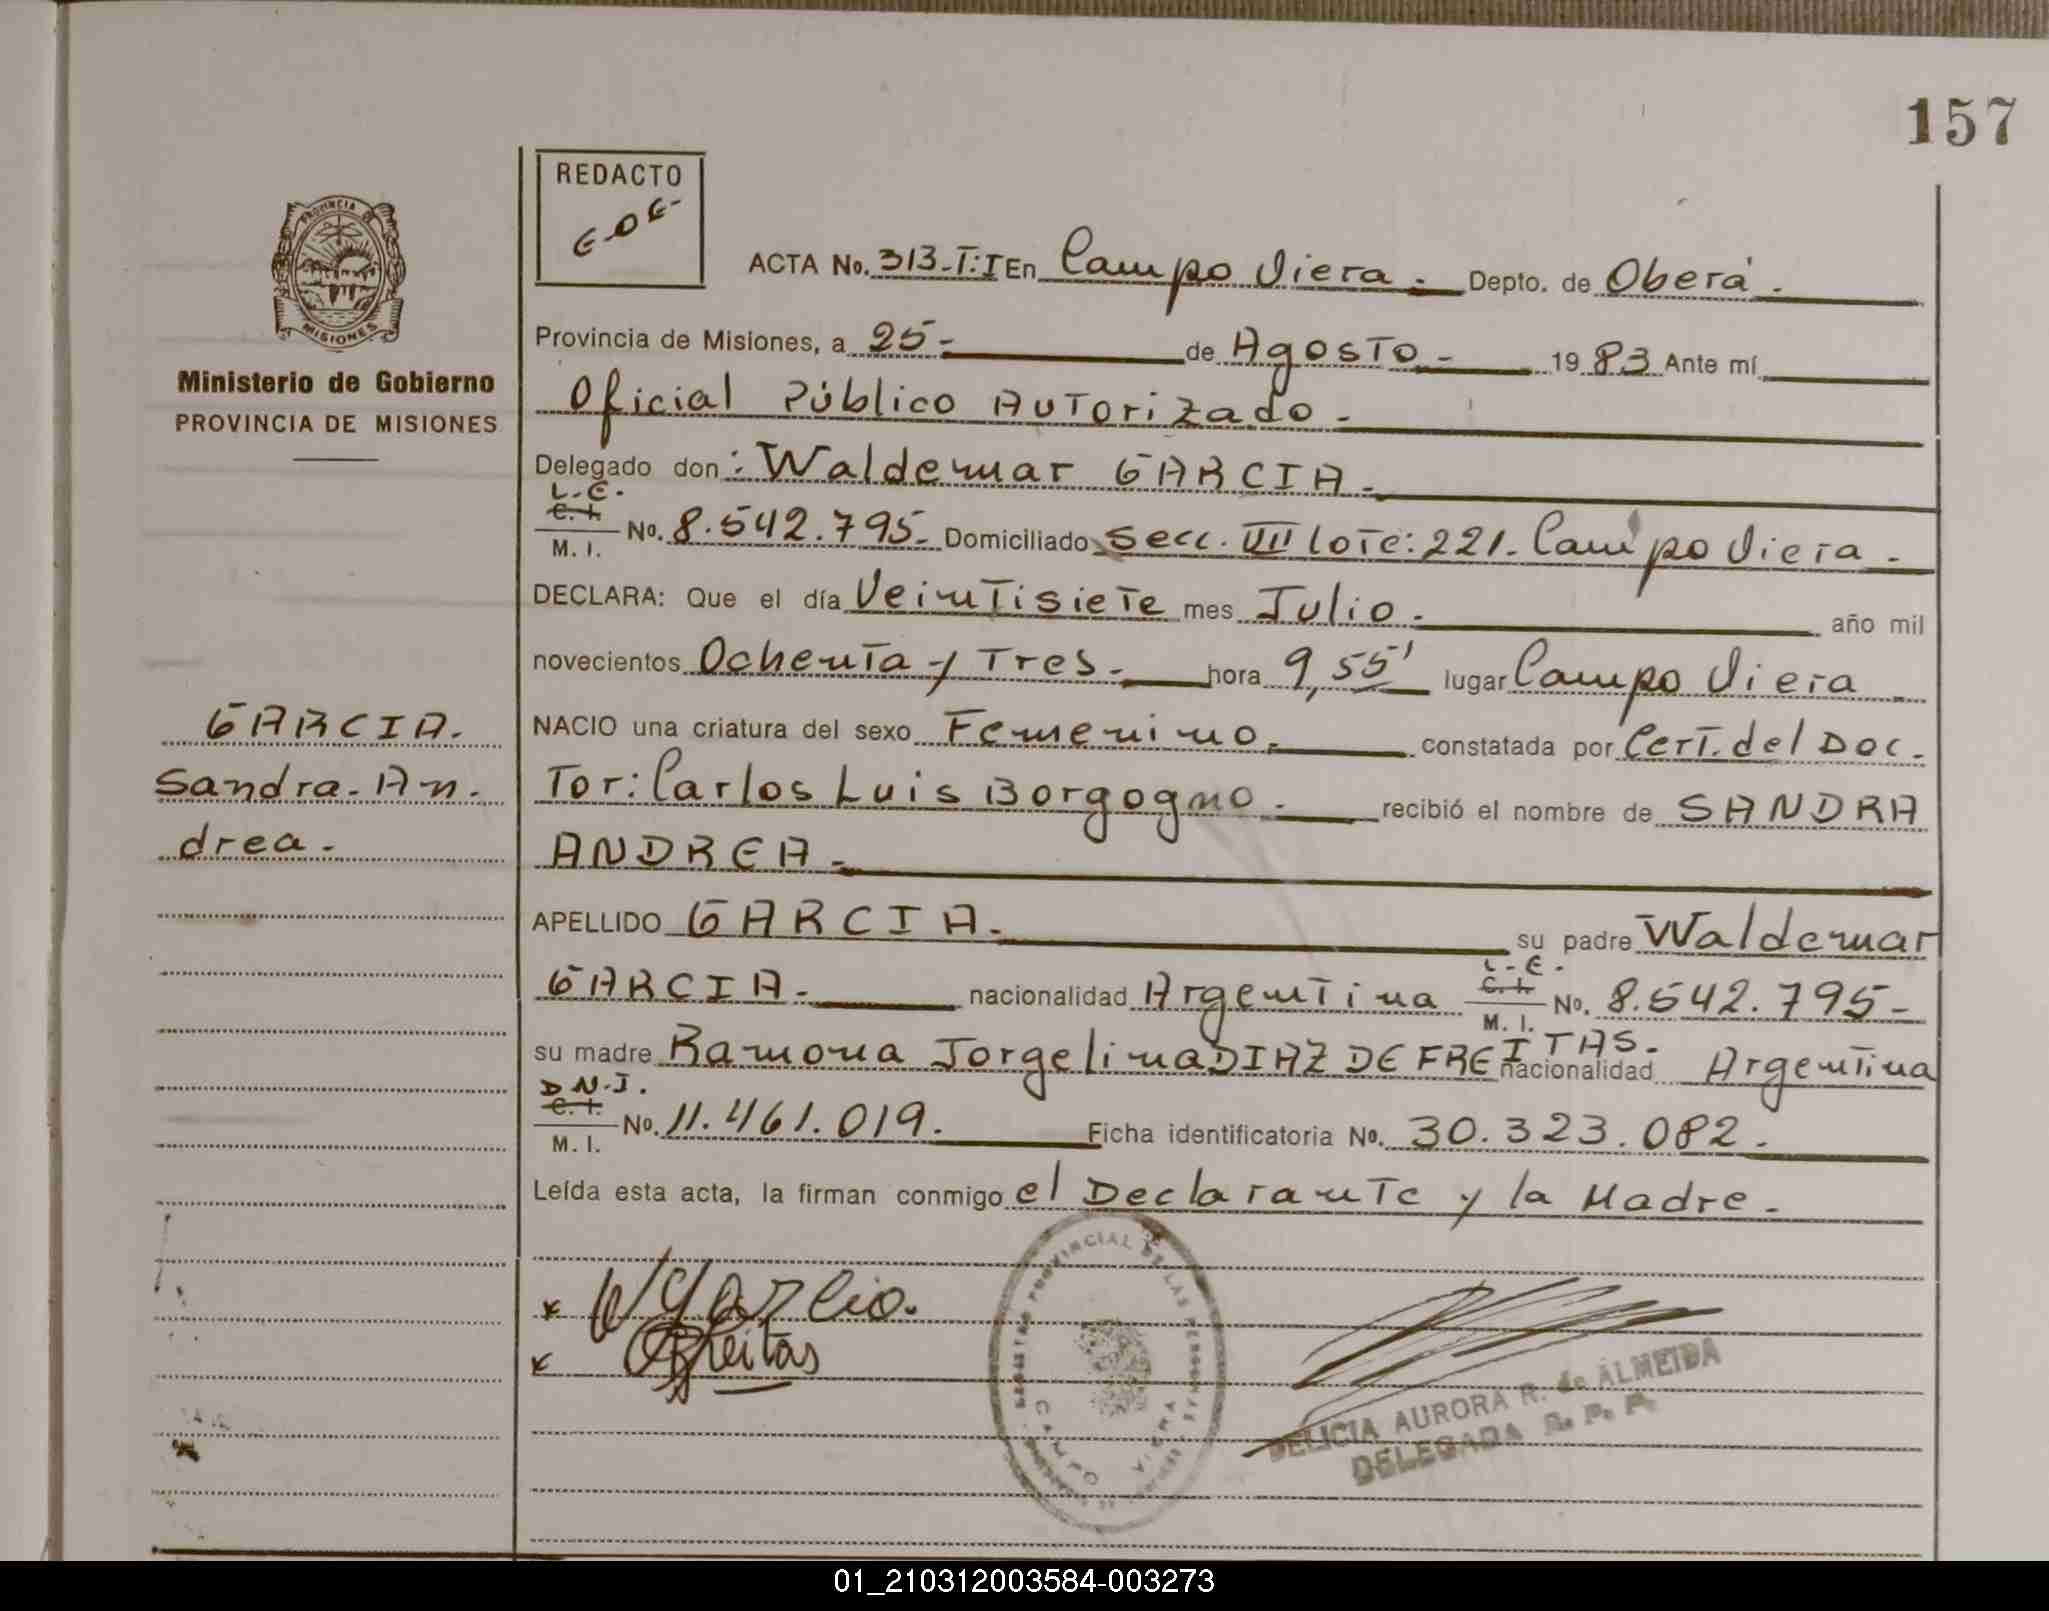 157
REDACTO
E-O-E-
PROVINCIA DE
MISIONES
Ministerio de Gobierno
PROVINCIA DE MISIONES
ACTA No. 313-T:I En Campo Viera. Depto. de Oberá.
Provincia de Misiones, a 25- de Agosto - 1983 Ante mí
Oficial Público Autorizado.
Delegado don: Waldemar GARCIA.
L.E.
C. I.
M. I. No. 8.542.795. Domiciliado Secc. VII lote: 221. Campo Viera.
DECLARA: Que el día Veintisiete mes Julio. año mil
novecientos Ochenta y Tres. hora 9,55' lugar Campo Viera
NACIO una criatura del sexo Femenino. constatada por Cert. del Doc.
Tor: Carlos Luis Borgogno. recibió el nombre de SANDRA
ANDREA.
GARCIA.
Sandra. An.
drea.
APELLIDO GARCIA. su padre Waldemar
L.E.
GARCIA. nacionalidad Argentina C. I. M. I. No. 8.542.795-
su madre Ramona Jorgelina DIAZ DE FREITAS. nacionalidad Argentina
D.N.I.
C. I.
M. I. No. 11.461.019. Ficha identificatoria No. 30.323.082.
Leída esta acta, la firman conmigo el Declarante y la Madre.
x WGarcia.
x Freitas
PROVINCIAL DE LAS PERSONAS
CAMPO VIERA
DELICIA AURORA R. de ALMEIDA
DELEGADA R. P. P.
01_210312003584-003273